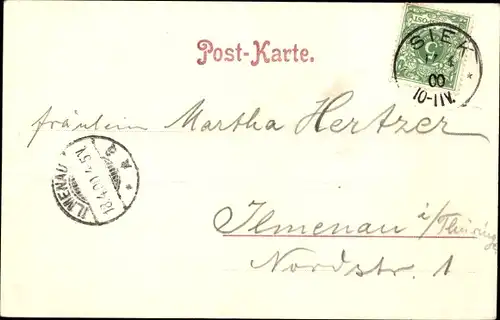 Post-Karte.
SIEK
4
00
10-11V.
POST
5
fräulein Martha Hertzer
ILMENAU
18.4.00.4-5V.
* a *
Ilmenau i/Thüringen
Nordstr. 1